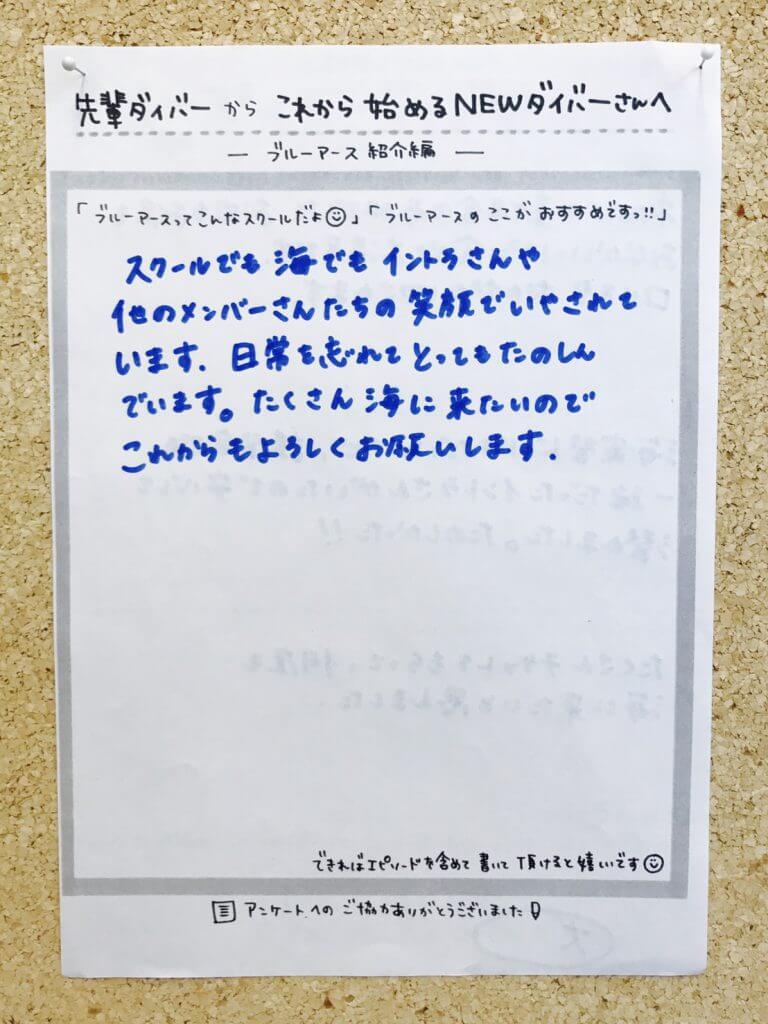 先輩ダイバーから これから始めるNEWダイバーさんへ
― ブルーアース紹介編 ―
「ブルーアースってこんなスクールだよ☺」「ブルーアースのここがおすすめですっ!!」
スクールでも海でもイントラさんや
他のメンバーさんたちの笑顔でいやされて
います. 日常を忘れてとってもたのしん
でいます。たくさん海に来たいので
これからもよろしくお願いします.
できればエピソードを含めて書いて頂けると嬉しいです☺
アンケートへのご協力ありがとうございました